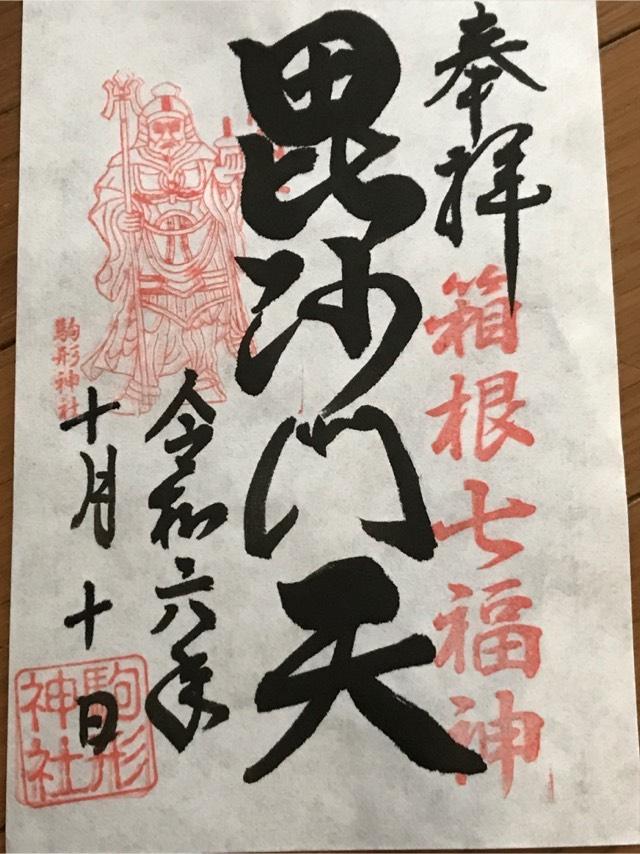 奉拝
箱根七福神
毘沙門天
令和六年
十月十日
駒形神社
駒形神社